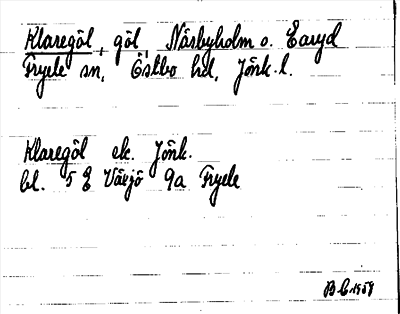 Klaregöl, göl, Näsbyholm o. Earyd
Fryele sn, Östbo hd, Jönk. l.
Klaregöl ek. Jönk.
bl. 5 E Växjö 9a Fryele
BL 1959